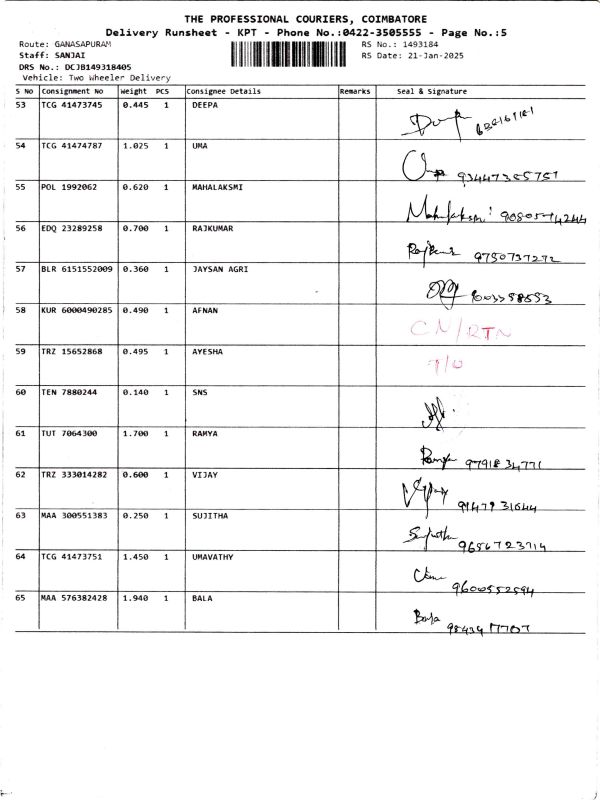 THE PROFESSIONAL COURIERS, COIMBATORE
Delivery Runsheet - KPT - Phone No.:0422-3505555 - Page No.:5
Route: GANASAPURAM RS No.: 1493184
Staff: SANJAI RS Date: 21-Jan-2025
DRS No.: DCJB149318405
Vehicle: Two Wheeler Delivery
S No Consignment No Weight PCS Consignee Details Remarks Seal & Signature
53 TCG 41473745 0.445 1 DEEPA
54 TCG 41474787 1.025 1 UMA
93447355751
55 POL 1992062 0.620 1 MAHALAKSMI
Mahalaksmi
56 EDQ 23289258 0.700 1 RAJKUMAR
9750737272
57 BLR 6151552009 0.360 1 JAYSAN AGRI
58 KUR 6000490285 0.490 1 AFNAN
CN/RTN
59 TRZ 15652868 0.495 1 AYESHA
T/O
60 TEN 7880244 0.140 1 SNS
61 TUT 7064300 1.700 1 RAMYA
Ramya 9791834771
62 TRZ 333014282 0.600 1 VIJAY
Vijay 9147931644
63 MAA 300551383 0.250 1 SUJITHA
Sujitha 9656723714
64 TCG 41473751 1.450 1 UMAVATHY
9600552594
65 MAA 576382428 1.940 1 BALA
Bala